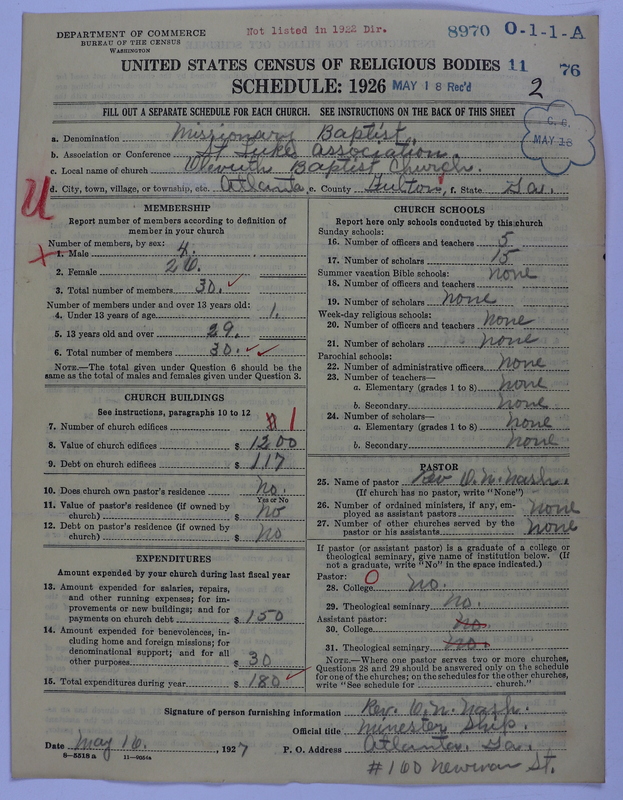 DEPARTMENT OF COMMERCE
BUREAU OF THE CENSUS
WASHINGTON
Not listed in 1922 Dir.
8970 0-1-1-A
UNITED STATES CENSUS OF RELIGIOUS BODIES 11 76
SCHEDULE: 1926 MAY 18 Rec'd 2
FILL OUT A SEPARATE SCHEDULE FOR EACH CHURCH. SEE INSTRUCTIONS ON THE BACK OF THIS SHEET
C. B.
MAY 18
a. Denomination Missionary Baptist
b. Association or Conference St Luke Association.
c. Local name of church Baptist Church.
d. City, town, village, or township, etc. Atlanta e. County Fulton, f. State Ga.
U
MEMBERSHIP
Report number of members according to definition of
member in your church
Number of members, by sex:
X 1. Male 4.
2. Female 26.
3. Total number of members 30. ✓
Number of members under and over 13 years old:
4. Under 13 years of age 1.
5. 13 years old and over 29.
6. Total number of members 30. ✓ ✓
NOTE.—The total given under Question 6 should be the
same as the total of males and females given under Question 3.
CHURCH BUILDINGS
See instructions, paragraphs 10 to 12
7. Number of church edifices 1
8. Value of church edifices $ 1200
9. Debt on church edifices $ 117
10. Does church own pastor's residence No.
Yes or No
11. Value of pastor's residence (if owned by
church) $ No
12. Debt on pastor's residence (if owned by
church) $ No
EXPENDITURES
Amount expended by your church during last fiscal year
13. Amount expended for salaries, repairs,
and other running expenses; for im-
provements or new buildings; and for
payments on church debt $ 150
14. Amount expended for benevolences, in-
cluding home and foreign missions; for
denominational support; and for all
other purposes $ 30
15. Total expenditures during year $ 180 ✓
CHURCH SCHOOLS
Report here only schools conducted by this church
Sunday schools:
16. Number of officers and teachers 5
17. Number of scholars 15
Summer vacation Bible schools:
18. Number of officers and teachers none
19. Number of scholars none
Week-day religious schools:
20. Number of officers and teachers none
21. Number of scholars none
Parochial schools:
22. Number of administrative officers none
23. Number of teachers—
a. Elementary (grades 1 to 8) none
b. Secondary none
24. Number of scholars—
a. Elementary (grades 1 to 8) none
b. Secondary none
PASTOR
25. Name of pastor Rev O. N. Nash.
(If church has no pastor, write "None")
26. Number of ordained ministers, if any, em-
ployed as assistant pastors none
27. Number of other churches served by the
pastor or his assistants none
If pastor (or assistant pastor) is a graduate of a college or
theological seminary, give name of institution below. (If
not a graduate, write "No" in the space indicated.)
Pastor:
28. College O No.
29. Theological seminary No.
Assistant pastor:
30. College No.
31. Theological seminary No.
NOTE.—Where one pastor serves two or more churches,
Questions 28 and 29 should be answered only on the schedule
for one of the churches; on the schedules for the other churches,
write "See schedule for church."
Signature of person furnishing information Rev. O. N. Nash.
Official title Minester Ship.
Date May 16., 1927 P. O. Address Atlanta. Ga.
8—5518 a 11—9054a
#160 Newman St.